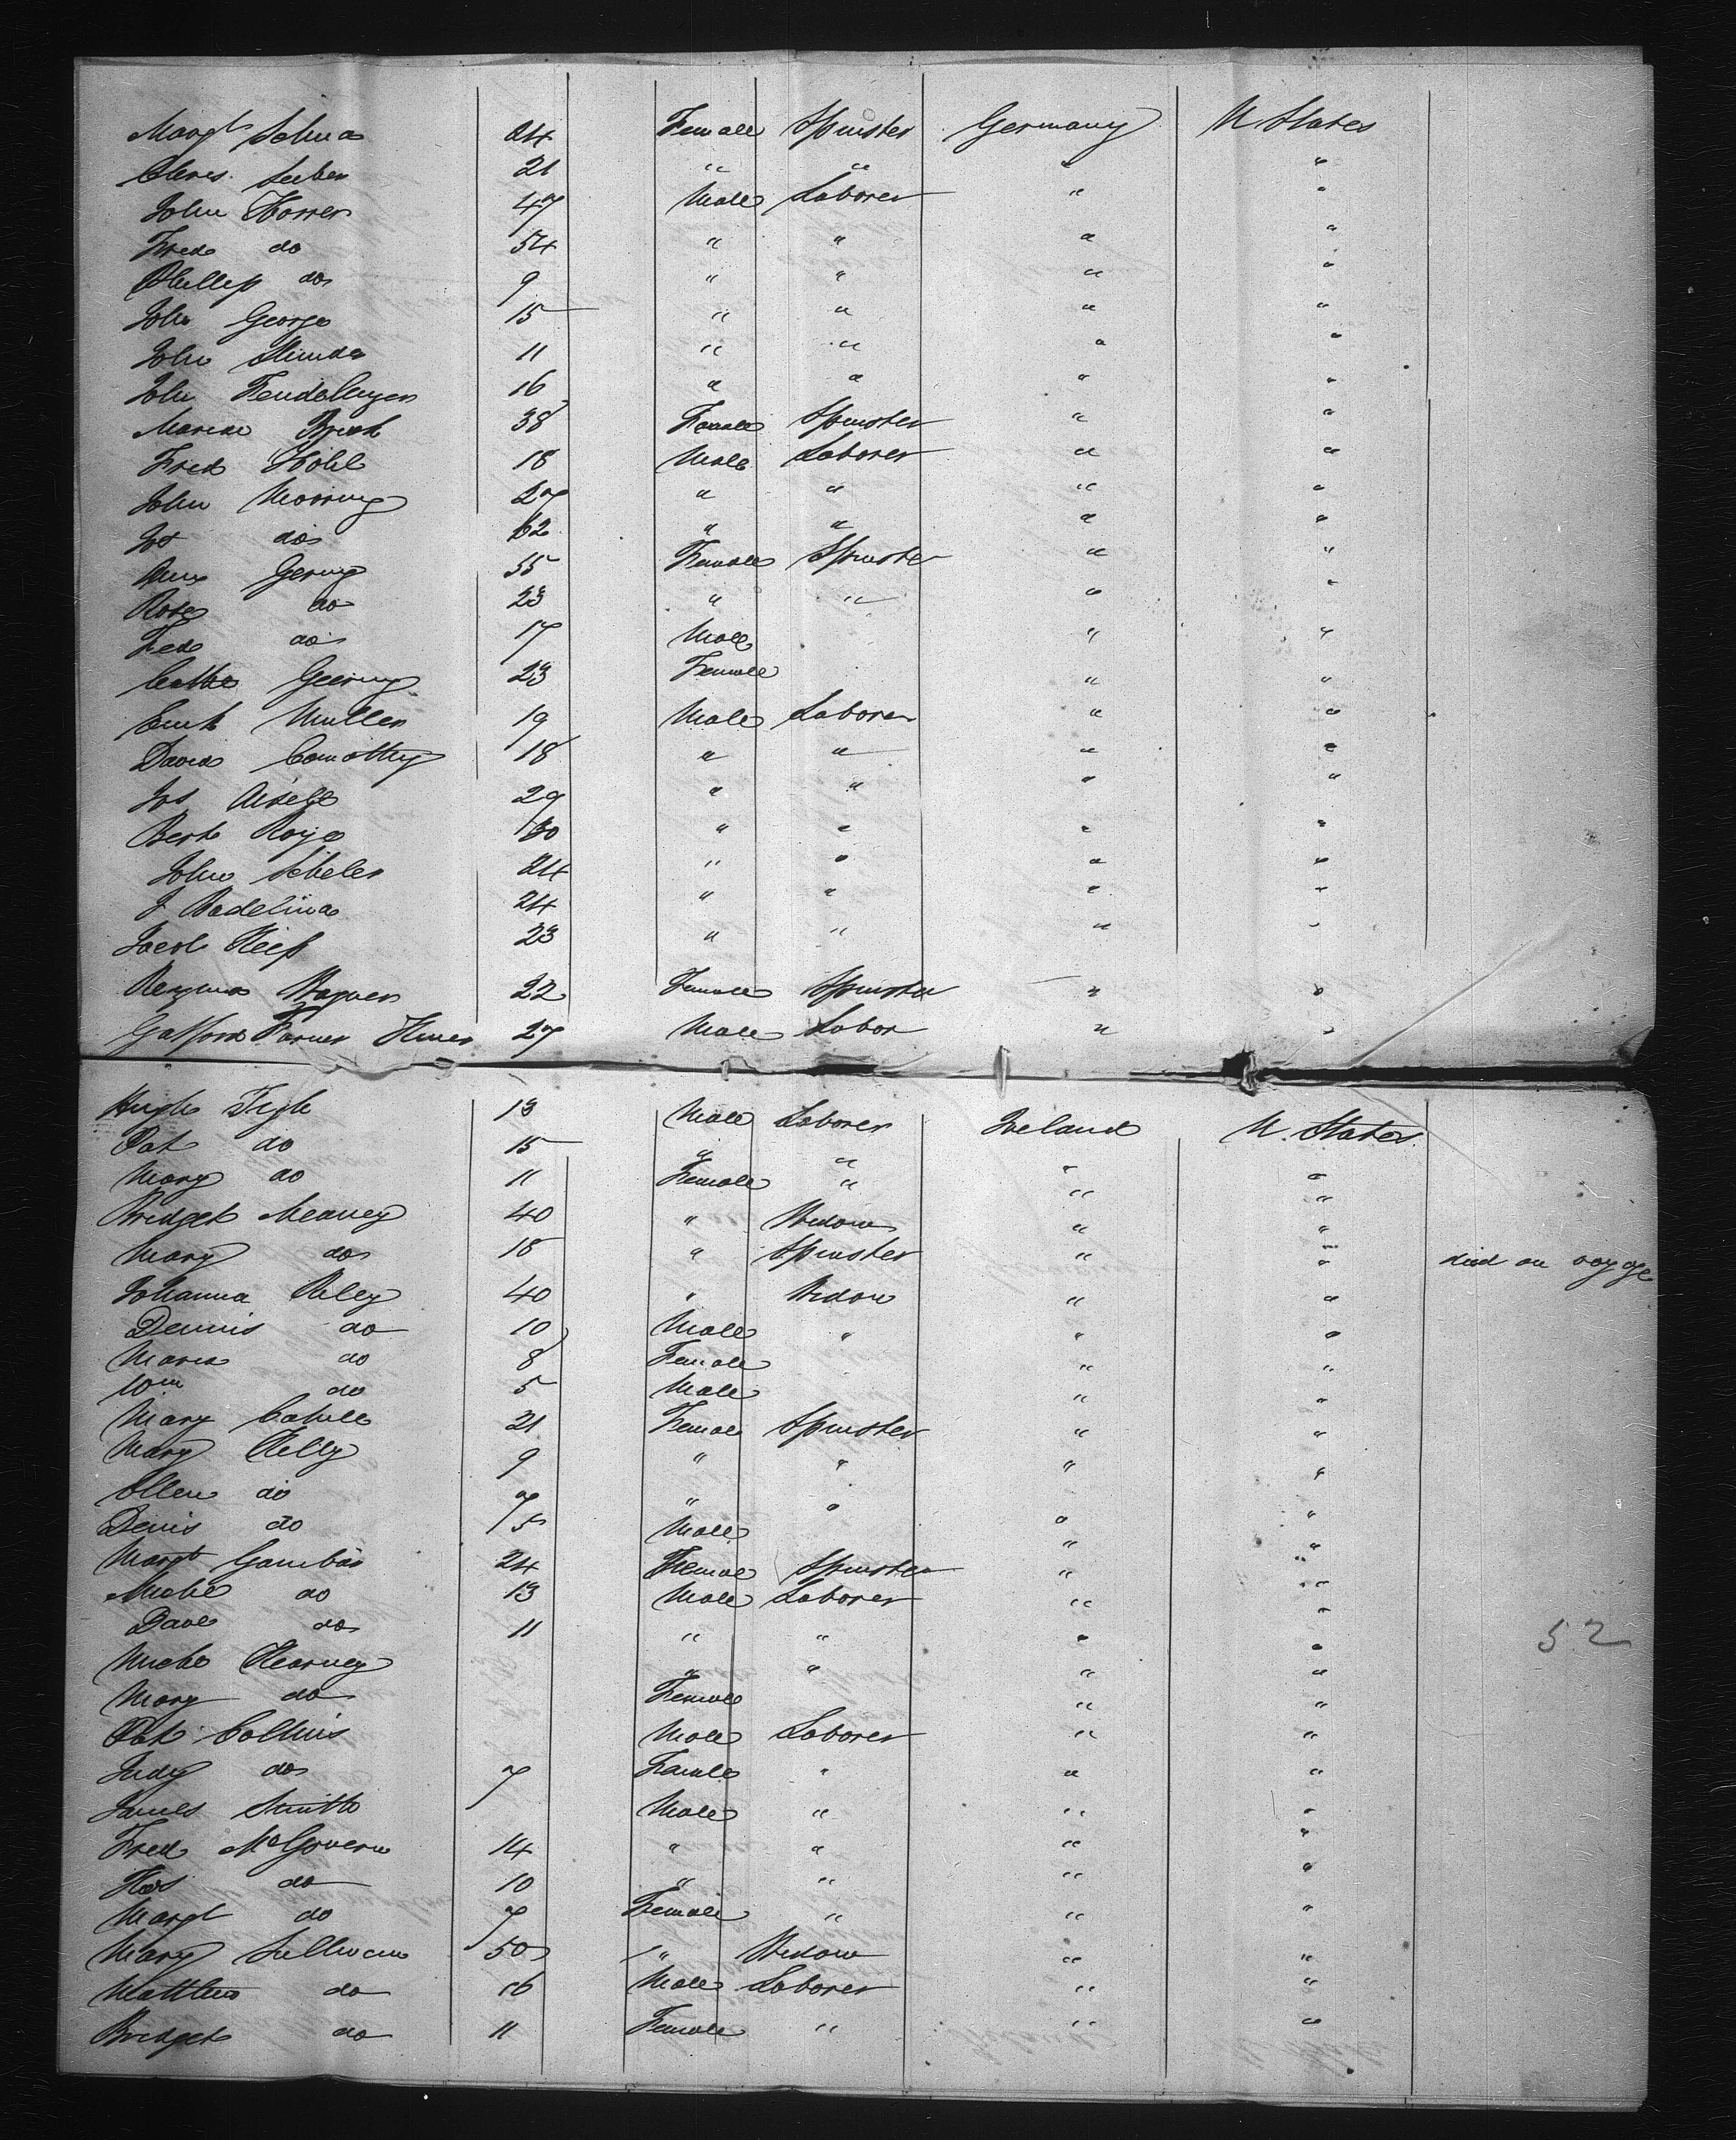 Margt Schua 24 Female Spinster Germany U States
Chrs. Seiber 21 " " " "
John Horrer 47 Male Laborer " "
Fred do 54 " " " "
Phillip do 9 " " " "
John George 15 " " " "
John 11 " " " "
John 16 " " " "
38 Female Spinster " "
Fred Hohl 18 Male Laborer " "
John Morring 27 " " " "
do 62 " " " "
Ann Gering 55 Female Spinster " "
Rosa do 23 " " " "
Fed do 17 Male " "
Cathe Geering 23 Female " "
Muller 19 Male Laborer " "
David Comothy 18 " " " "
Jos 29 " " " "
30 " " " "
John Scheler 24 " " " "
J Badelina 24 " " " "
Jacob Kleiss 23 " " " "
Wagner 22 Female Spinster " "
27 Male Labor " "
Hugh Tigh 13 Male Laborer Ireland U. States
Pat do 15 " " " "
Mary do 11 Female " " "
Bridget Meaney 40 " Widow " "
Mary do 18 " Spinster " " died on voyge
Johanna Riley 40 " Widow " "
Dennis do 10 Male " " "
Maria do 8 Female " "
Wm do 5 Male " "
Mary Cahill 21 Female Spinster " "
Mary Kelly 9 " " " "
Ellen do 7 " " " "
Denis do 5 Male " "
Margt 24 Female Spinster " "
Michl do 13 Male Laborer " "
Dave do 11 " " " "
52
Michl Kearney " " " "
Mary do Female " "
Pat Collins Male Laborer " "
Judy do 7 Famle " " "
James Smith Male " " "
Fred McGovern 14 " " " "
do 10 " " " "
Margt do 7 Female " " "
Mary Sullivan 50 " Widow " "
Matthew do 16 Male Laborer " "
Bridget do 11 Female " " "